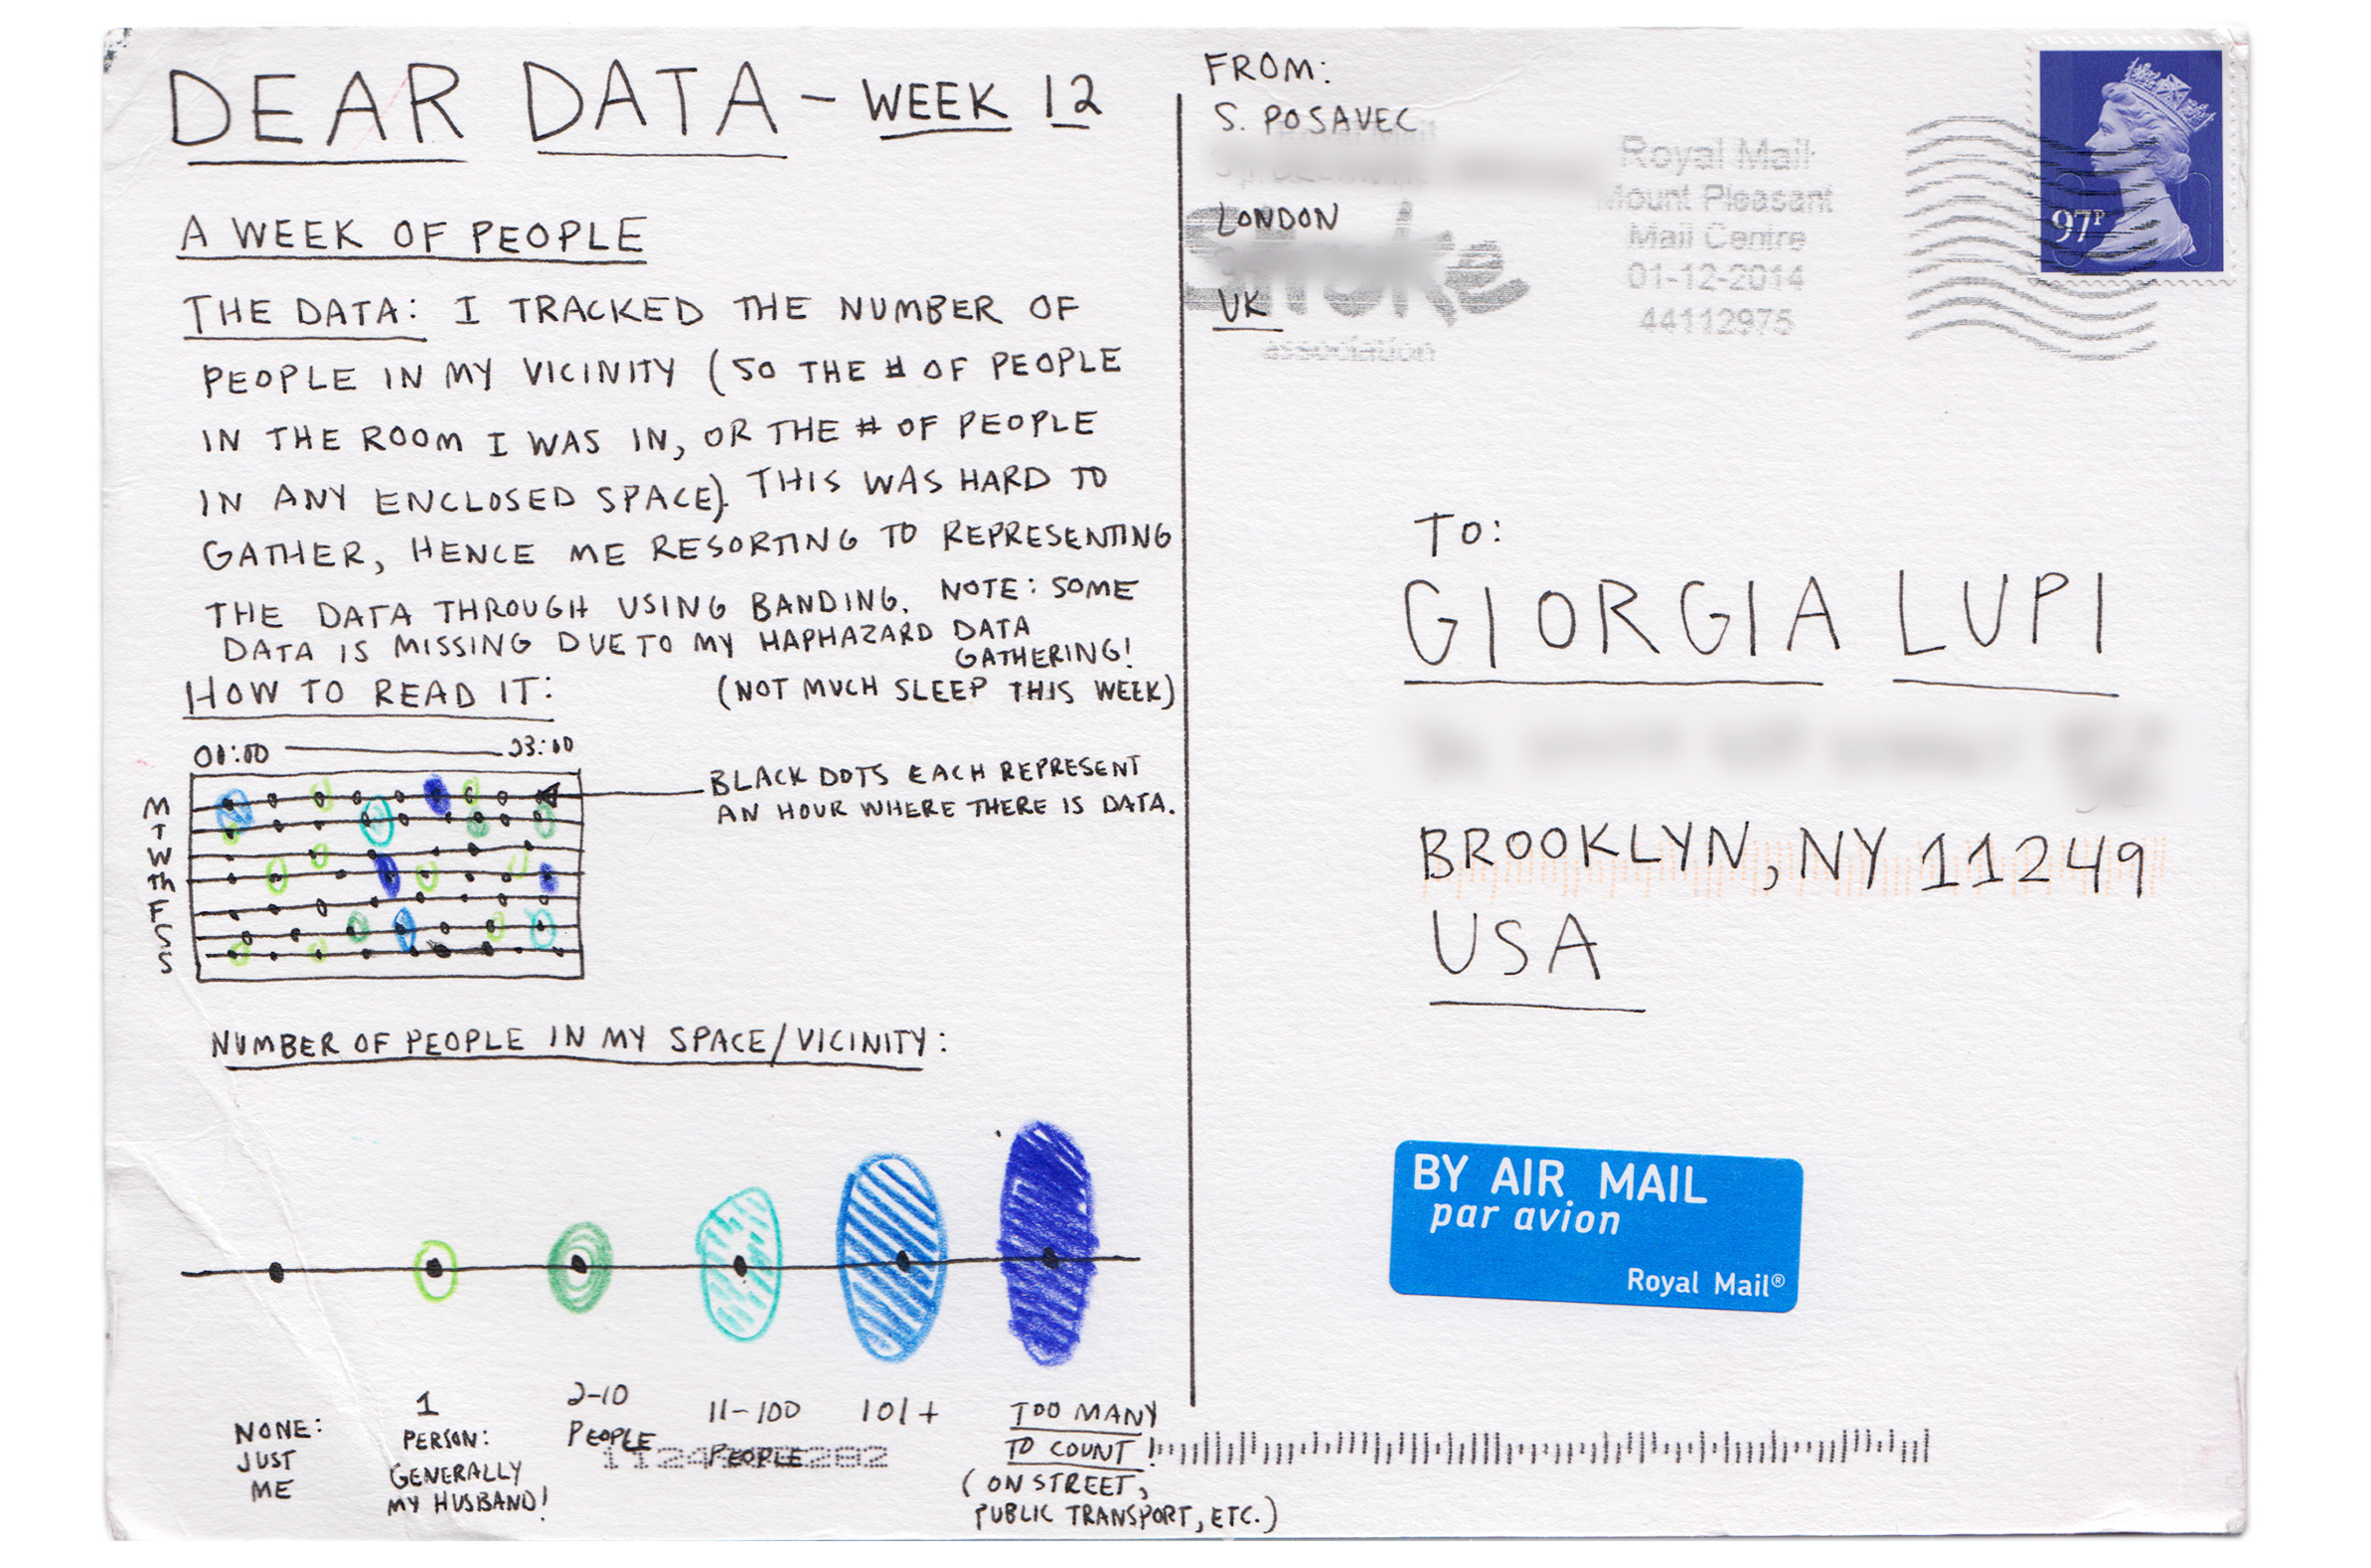 DEAR DATA - WEEK 12
A WEEK OF PEOPLE
THE DATA: I TRACKED THE NUMBER OF
PEOPLE IN MY VICINITY (SO THE # OF PEOPLE
IN THE ROOM I WAS IN, OR THE # OF PEOPLE
IN ANY ENCLOSED SPACE). THIS WAS HARD TO
GATHER, HENCE ME RESORTING TO REPRESENTING
THE DATA THROUGH USING BANDING. NOTE: SOME
DATA IS MISSING DUE TO MY HAPHAZARD DATA
GATHERING!
(NOT MUCH SLEEP THIS WEEK)
HOW TO READ IT:
23:00
M
T
W
Th
F
S
S
BLACK DOTS EACH REPRESENT
AN HOUR WHERE THERE IS DATA.
NUMBER OF PEOPLE IN MY SPACE/VICINITY:
NONE:
JUST
ME
1
PERSON:
GENERALLY
MY HUSBAND!
2-10
PEOPLE
11-100
PEOPLE
101+
TOO MANY
TO COUNT!
(ON STREET,
PUBLIC TRANSPORT, ETC.)
FROM:
S. POSAVEC
LONDON
UK
Stroke
association
Royal Mail
Mount Pleasant
Mail Centre
01-12-2014
44112975
97P
TO:
GIORGIA LUPI
BROOKLYN, NY 11249
USA
BY AIR MAIL
par avion
Royal Mail®